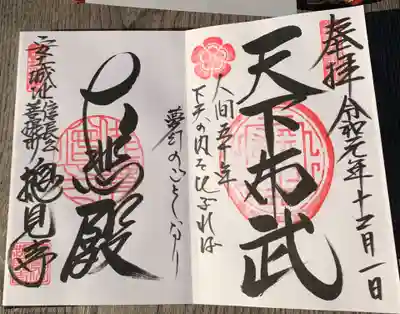 奉拝
令和元年十二月一日
天下布武
人間五十年
下天の内をくらぶれば
夢幻のごとくなり
心悲殿
安土城址
信長公
菩提所
摠見寺